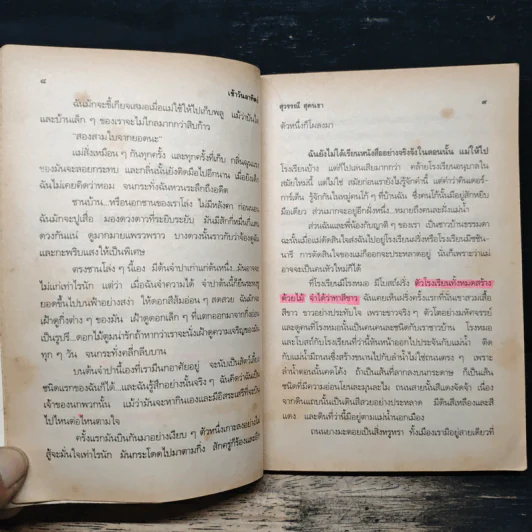 ๘
เช้าวันอาทิตย์
ฉันมักจะขี้เกียจเสมอเมื่อแม่ใช้ให้ไปเก็บพลู แม้ว่าบันได
และบ้านเล็ก ๆ ของเราจะไม่ไกลมากกว่าสิบก้าว
"สองสามใบจากยอดนะ"
แม่สั่งเหมือน ๆ กันทุกครั้ง และทุกครั้งที่เก็บ กลิ่นฉุนแรง
ของมันจะลอยกระทบ และกลิ่นนั้นยังติดมือไปอีกนาน เมื่อยังเด็ก
ฉันไม่เคยคิดว่าหอม จนกระทั่งฉันหวนระลึกถึงอดีต
ชานบ้าน...หรือนอกชานของเราโล่ง ไม่มีหลังคา ก่อนนอน
ฉันมักจะปูเสื่อ มองดวงดาวที่ระยิบระยับ มันมีสักกี่หมื่นกี่แสน
ดวงกันแน่ ดูมากมายแพรวพราว บางดวงนั้นราวกับว่าจ้องดูฉัน
และกะพริบแสงให้เป็นพิเศษ
ตรงชานโล่ง ๆ นี้เอง มีต้นจำปาเก่าแก่ต้นหนึ่ง...มันอาจจะ
ไม่แก่เท่าไรนัก แต่ว่า เมื่อฉันจำความได้ จำปาต้นนี้ก็ยืนชะรูด
ยอดขึ้นไปบนฟ้าอย่างสง่า ให้ดอกสีส้มอ่อน ๆ สดสวย ฉันมักจะ
เฝ้าดูกิ่งต่าง ๆ ของมัน เฝ้าดูดอกเล็ก ๆ ที่แตกออกมาจากก้าน
เป็นรูปรี...ดอกไม้ดูน่ารักถ้าหากว่าเราจะนั่งเฝ้าดูความเจริญของมัน
ทุก ๆ วัน จนกระทั่งคลี่กลีบบาน
บนต้นจำปานี้เองที่เรามีนกอาศัยอยู่ จะนับเป็นสัตว์เลี้ยง
ชนิดแรกของฉันก็ได้...และฉันรู้สึกอย่างนั้นจริง ๆ ฉันคิดว่าฉันเป็น
เจ้าของนกพวกนั้น แม้ว่ามันจะหากินเองและมีอิสระเสรีที่จะบิน
ไปไหนต่อไหนตามใจ
ครั้งแรกมันบินกันมาอย่างเงียบ ๆ ตัวหนึ่งเกาะลงอย่างไม่
สู้จะมั่นใจเท่าไรนัก มันกระโดดไปมาตามกิ่ง สักครู่ก็ร้องและอีก
สุวรรณี สุคนธา
๙
ตัวหนึ่งก็โผลงมา
ฉันยังไม่ได้เรียนหนังสืออย่างจริงจังในตอนนั้น แม่ให้ไป
โรงเรียนบ้าง แต่ก็ไปเล่นเสียมากกว่า คล้ายโรงเรียนอนุบาลใน
สมัยใหม่นี้ แต่ไม่ใช่ สมัยก่อนเรายังไม่รู้จักคำนี้ แต่คำว่าคินเดอร์-
การ์เต้น รู้จักกันในหมู่คนโก้ ๆ ที่บ้านฉัน ซึ่งคนโก้นั้นมีอยู่สักหยิบ
มือเดียว ส่วนมากจะอยู่อีกฝั่งหนึ่ง...หมายถึงคนละฝั่งแม่น้ำ
ส่วนฉันและพี่น้องกับญาติ ๆ ของเรา เป็นชาวบ้านธรรมดา
ฉะนั้นเมื่อแม่ตัดสินใจส่งฉันไปอยู่โรงเรียนฝรั่งหรือโรงเรียนมิชชัน-
นารี การตัดสินใจของแม่ก็ออกจะประหลาดอยู่ นั่นก็เพราะว่าแม่
อาจจะเป็นคนหัวใหม่ก็ได้
ที่โรงเรียนมีโรงหมอ มีโบสถ์ฝรั่ง ตัวโรงเรียนทั้งหมดสร้าง
ด้วยไม้ จำได้ว่าทาสีขาว ฉันเคยเห็นฝรั่งครั้งแรกที่นั่นเขาสวมเสื้อ
สีขาว ขาวอย่างประทับใจ เพราะขาวจริง ๆ ตัวโตอย่างมหัศจรรย์
และดูคนที่โรงหมอนั้นเป็นคนคนละชนิดกับเราชาวบ้าน โรงหมอ
และโบสถ์กับโรงเรียนที่ว่านี้หันหน้าออกไปประจันกับแม่น้ำ ติด
กับแม่น้ำมีถนนซึ่งสร้างขนานไปกับลำน้ำไม่ใช่ถนนตรง ๆ เพราะ
ลำน้ำตอนนั้นคดโค้ง ถ้าเป็นเส้นที่ลากลงบนกระดาษ ก็เป็นเส้น
ชนิดที่มีความอ่อนโยนละมุนละไม ถนนสายนั้นสีแดงจัดจ้า เนื่อง
จากดินแถบนั้นเป็นดินสีสวยอย่างประหลาด มีดินสีเหลืองและสี
แดง และดินที่ว่านี้มีอยู่ตามแม่น้ำนอกเมือง
ถนนยางมะตอยเป็นสิ่งหรูหรา ทั้งเมืองเรามีอยู่สายเดียวที่